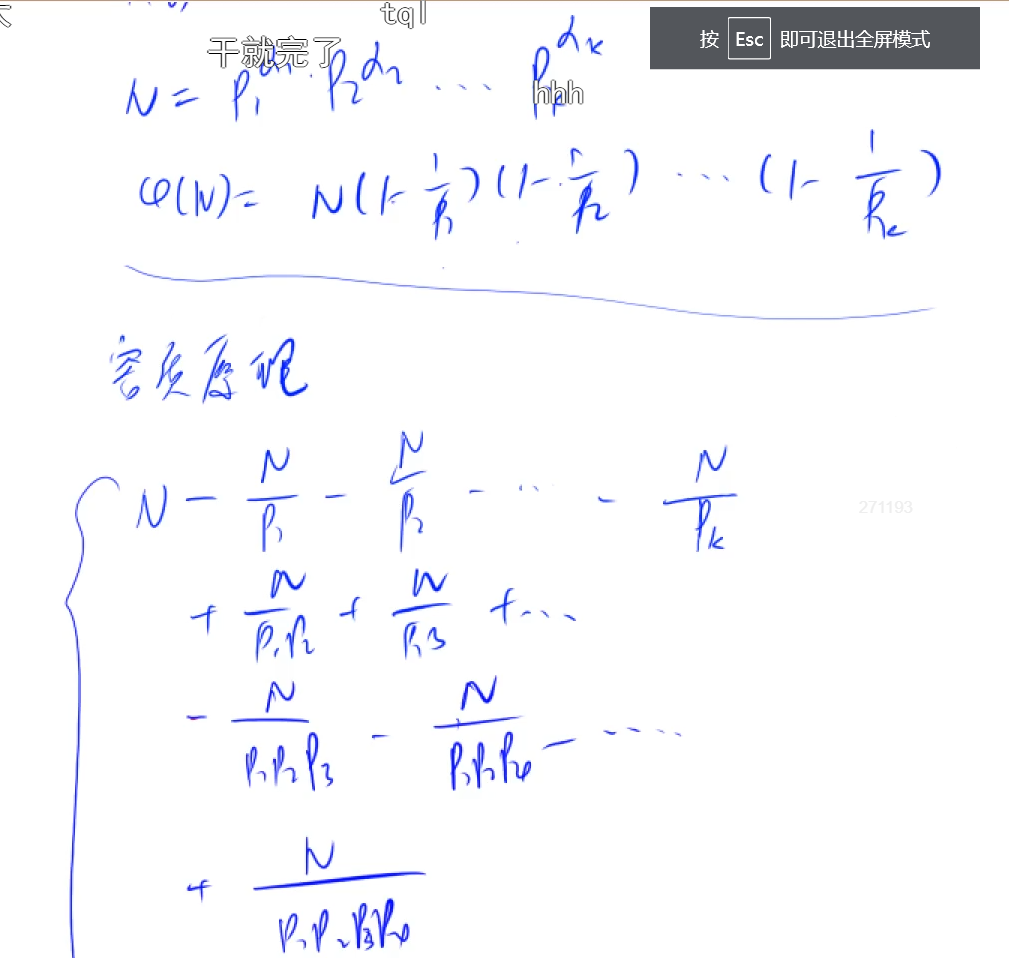 tql
干就完了
按 Esc 即可退出全屏模式
N = P₁^α₁ · P₂^α₂ ... Pₖ^αₖ
hhh
φ(N) = N(1 - 1/P₁)(1 - 1/P₂) ... (1 - 1/Pₖ)
容斥原理
N - N/P₁ - N/P₂ - ... - N/Pₖ
271193
+ N/P₁P₂ + N/P₁P₃ + ...
- N/P₁P₂P₃ - N/P₁P₂P₄ - ...
+ N/P₁P₂P₃P₄